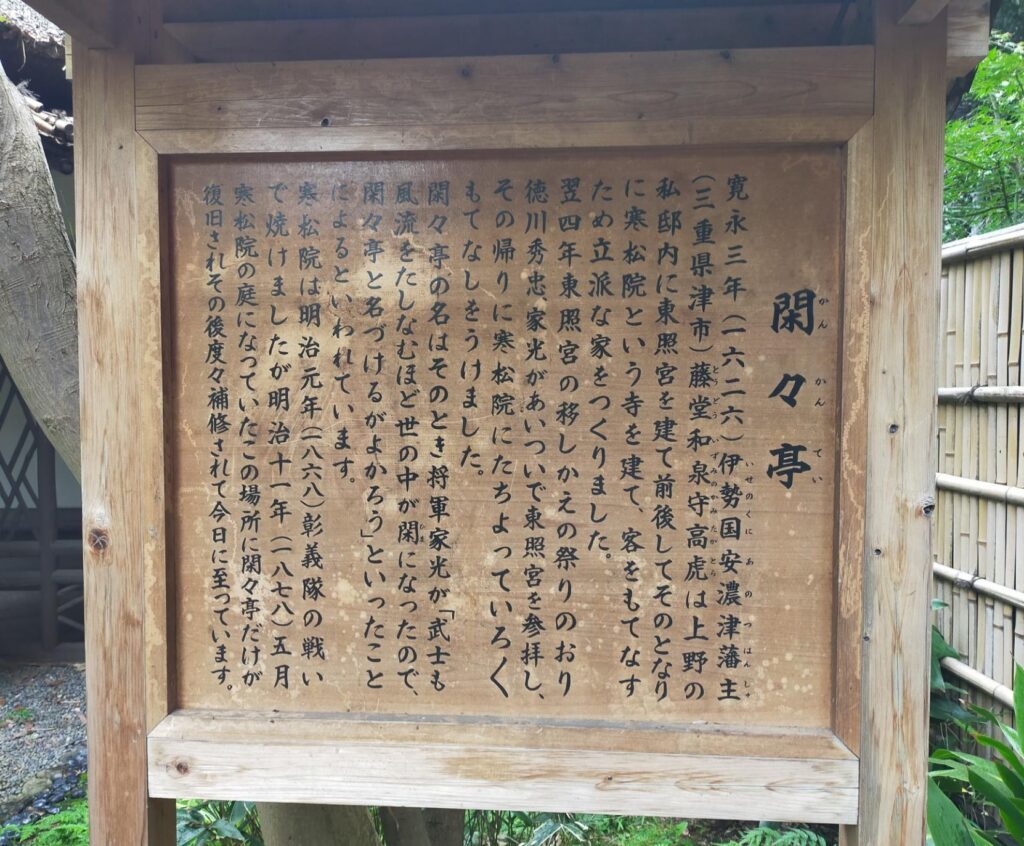 閑々亭
寛永三年(一六二六)伊勢国安濃津藩主
(三重県津市)藤堂和泉守高虎は上野の
私邸内に東照宮を建て前後してそのとなり
に寒松院という寺を建て、客をもてなす
ため立派な家をつくりました。
翌四年東照宮の移しかえの祭りのおり
徳川秀忠、家光があいついで東照宮を参拝し、
その帰りに寒松院にたちよっていろく
もてなしをうけました。
閑々亭の名はそのとき将軍家光が「武士も
風流をたしなむほど世の中が閑になったので、
閑々亭と名づけるがよかろう」といったこと
によるといわれています。
寒松院は明治元年(一八六八)彰義隊の戦い
で焼けましたが明治十一年(一八七八)五月
寒松院の庭になっていたこの場所に閑々亭だけが
復旧されその後度々補修されて今日に至っています。